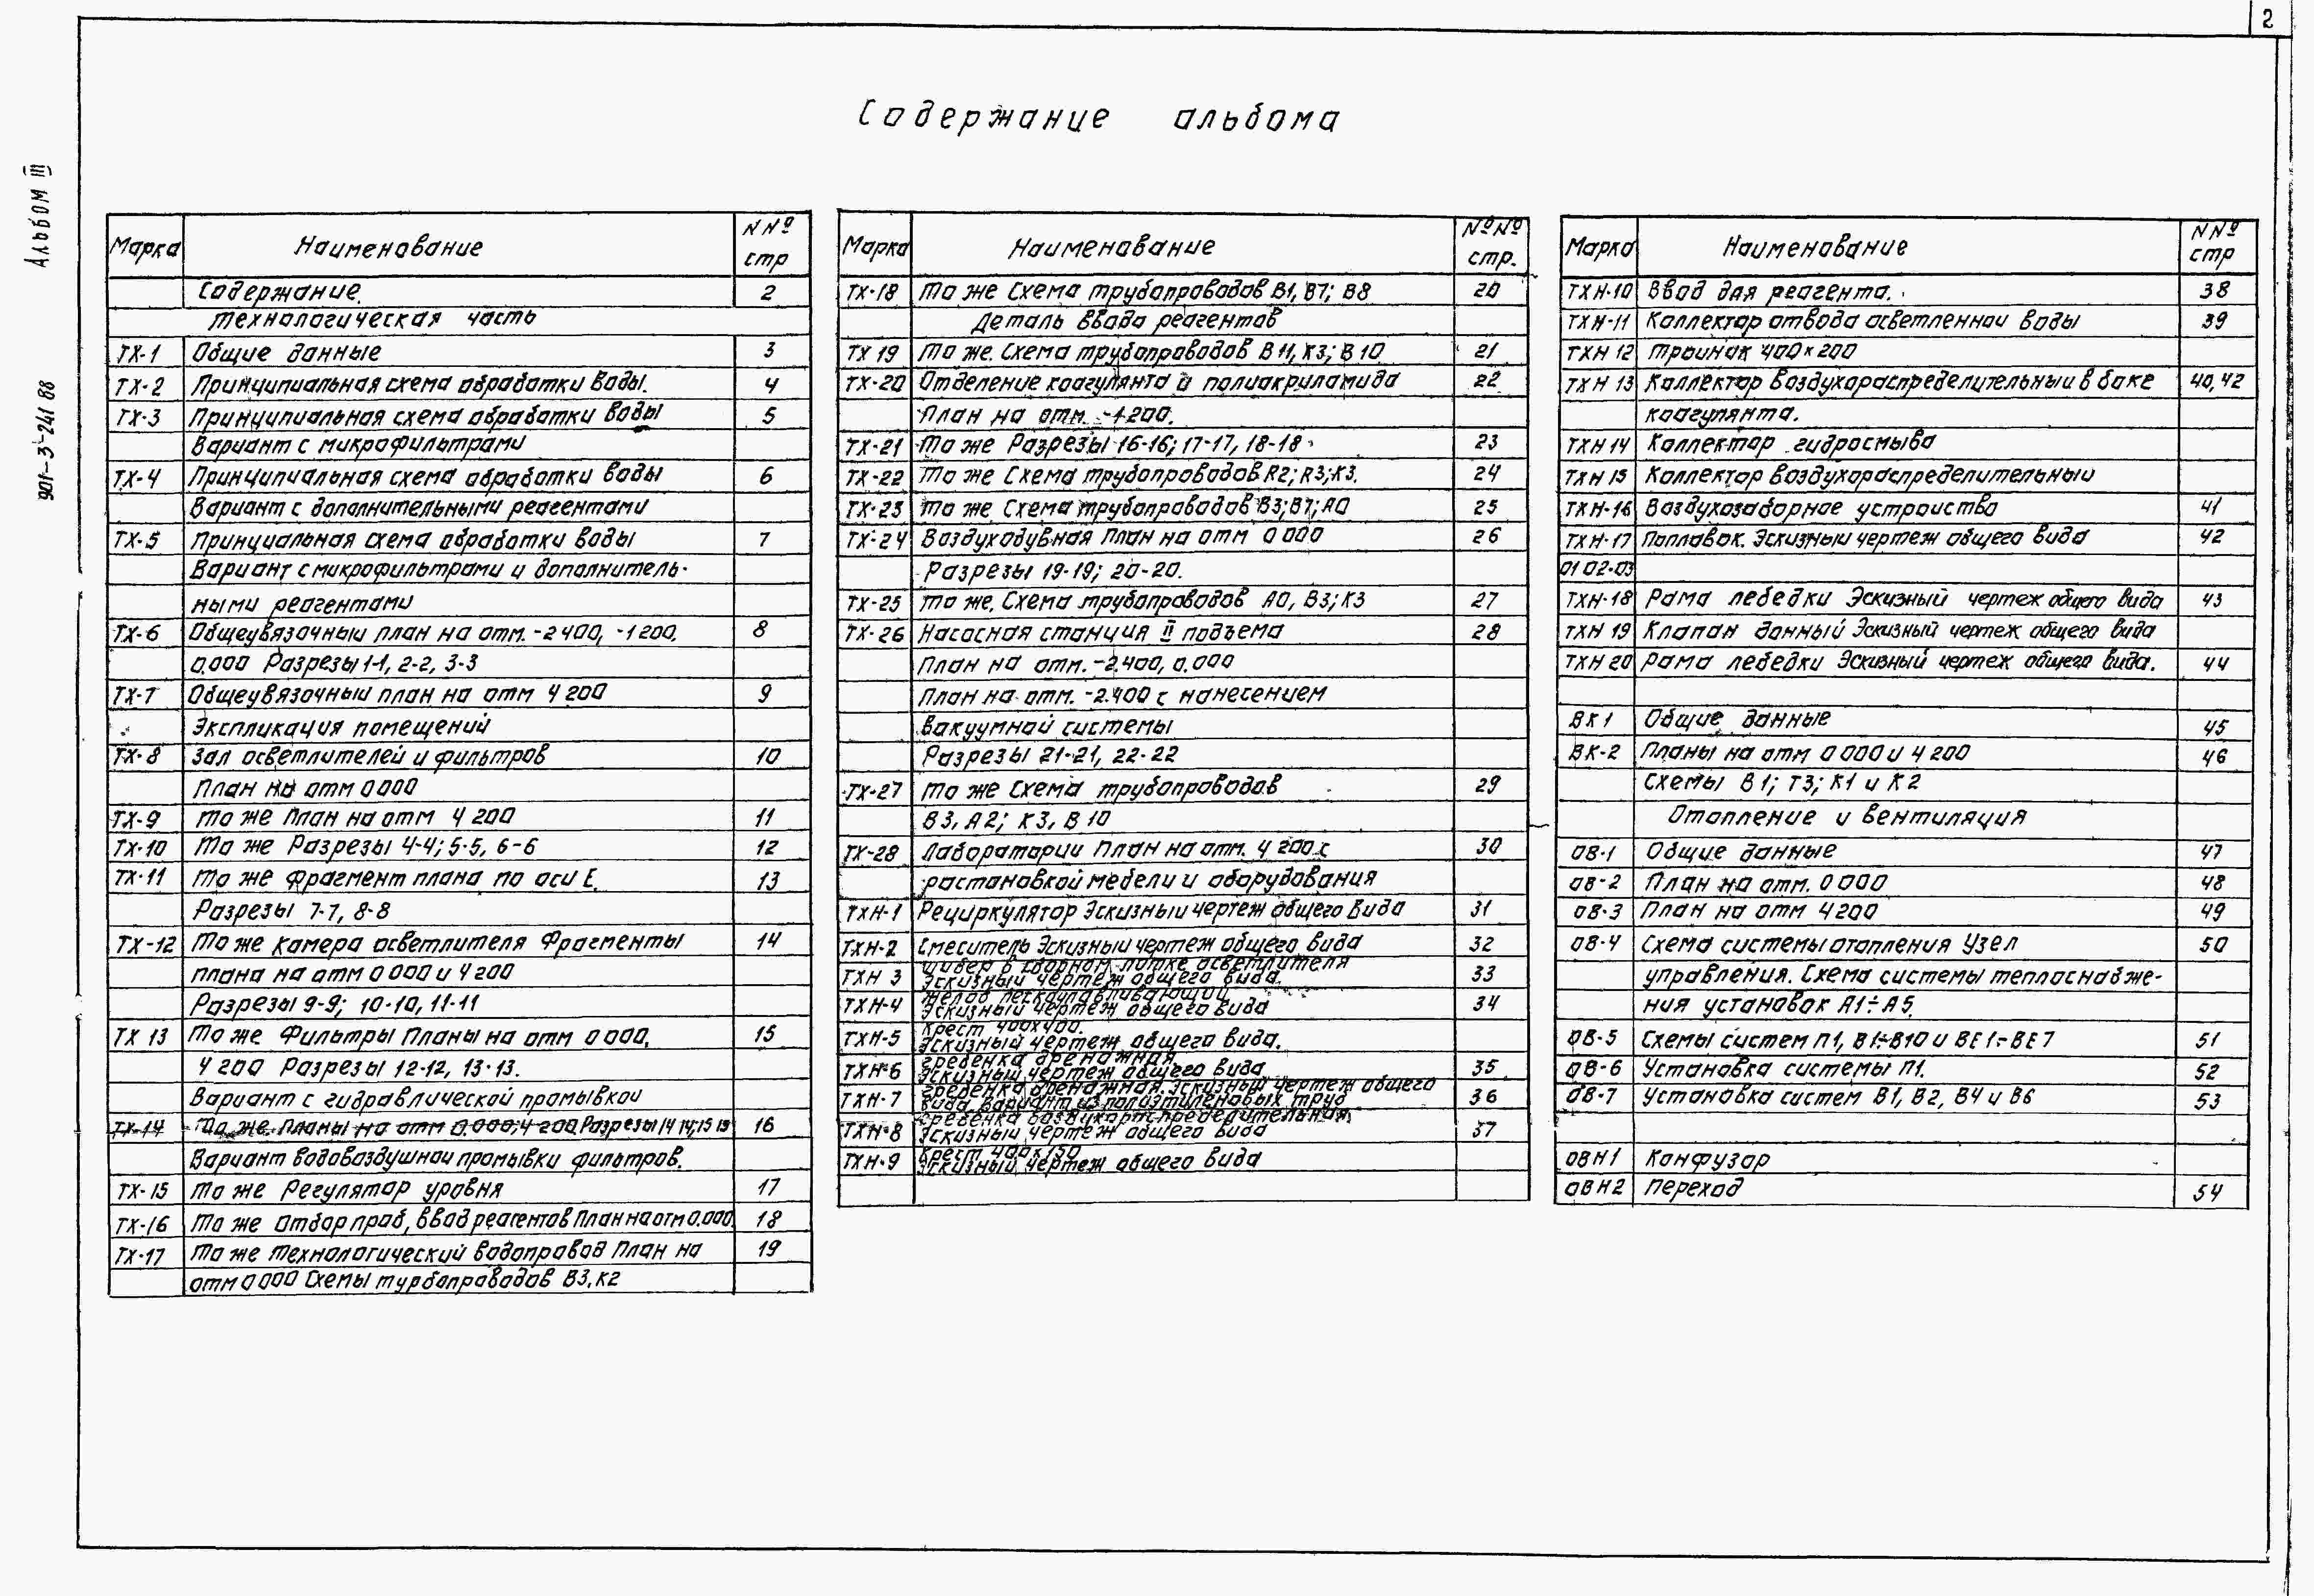 2
Содержание альбома
Альбом III
901-3-241 88
Марка Наименование NNº стр
Содержание. 2
Технологическая часть
ТХ-1 Общие данные 3
ТХ-2 Принципиальная схема обработки воды. 4
ТХ-3 Принципиальная схема обработки воды 5
Вариант с микрофильтрами
ТХ-4 Принципиальная схема обработки воды 6
Вариант с дополнительными реагентами
ТХ-5 Принуиальная схема обработки воды 7
Вариант с микрофильтрами и дополнитель-
ными реагентами
ТХ-6 Общеувязочный план на отм. -2 400, -1 200. 8
0.000 Разрезы 1-1, 2-2, 3-3
ТХ-7 Общеувязочный план на отм 4 200 9
Экспликация помещений
ТХ-8 Зал осветлителей и фильтров 10
План на отм 0 000
ТХ-9 То же План на отм 4 200 11
ТХ-10 То же Разрезы 4-4; 5-5, 6-6 12
ТХ-11 То же Фрагмент плана по оси Е. 13
Разрезы 7-7, 8-8
ТХ-12 То же Камера осветлителя Фрагменты 14
плана на отм 0 000 и 4 200
Разрезы 9-9; 10-10, 11-11
ТХ 13 То же Фильтры Планы на отм 0 000, 15
4 200 Разрезы 12-12, 13-13.
Вариант с гидравлической промывкой
ТХ-14 То же. Планы на отм 0.000; 4 200 Разрезы 14 14; 15 15 16
Вариант водовоздушной промывки фильтров.
ТХ-15 То же Регулятор уровня 17
ТХ-16 То же Отбор проб, ввод реагентов План на отм 0.000. 18
ТХ-17 То же Технологический водопровод План на 19
отм 0 000 Схемы турбопроводов В3, К2
Марка Наименование NºNº стр.
ТХ-18 То же Схема трубопроводов В1, В7; В8 20
Деталь ввода реагентов
ТХ 19 То же. Схема трубопроводов В11, К3; В10 21
ТХ-20 Отделение коагулянта и полиакриламида 22
План на отм. -1 200.
ТХ-21 То же Разрезы 16-16; 17-17, 18-18 23
ТХ-22 То же Схема трубопроводов R2; R3; К3. 24
ТХ-23 То же. Схема трубопроводов В3; В7; А0 25
ТХ-24 Воздуходувная План на отм 0 000 26
Разрезы 19-19; 20-20.
ТХ-25 То же. Схема трубопроводов А0, В3; К3 27
ТХ-26 Насосная станция II подъема 28
План на отм. -2.400, 0.000
План на отм. -2.400 с нанесением
вакуумной системы
Разрезы 21-21, 22-22
ТХ-27 То же Схема трубопроводов 29
В3, А2; К3, В10
ТХ-28 Лаборатории План на отм. 4 200 с 30
растановкой мебели и оборудования
ТХН-1 Рециркулятор Эскизный чертеж общего вида 31
ТХН-2 Смеситель Эскизный чертеж общего вида 32
ТХН 3 Шибер в сборном лотке осветлителя
Эскизный чертеж общего вида. 33
ТХН-4 Желоб пескоулавливающий
Эскизный чертеж общего вида 34
ТХН-5 Крест 400х400.
Эскизный чертеж общего вида.
ТХН-6 Гребенка дренажная.
Эскизный чертеж общего вида 35
ТХН-7 Гребенка дренажная. Эскизный чертеж общего
вида Вариант из полиэтиленовых труб 36
ТХН-8 Гребенка воздухораспределительная.
Эскизный чертеж общего вида 37
ТХН-9 Крест 400х150
Эскизный чертеж общего вида
Марка Наименование NNº стр
ТХН-10 Ввод для реагента. 38
ТХН-11 Коллектор отвода осветленной воды 39
ТХН 12 Тройник 400х200
ТХН 13 Коллектор воздухораспределительный в баке 40,42
коагулянта.
ТХН 14 Коллектор гидросмыва
ТХН 15 Коллектор воздухораспределительный
ТХН-16 Воздухозаборное устройство 41
ТХН-17 Поплавок. Эскизный чертеж общего вида 42
01 02-03
ТХН-18 Рама лебедки Эскизный чертеж общего вида 43
ТХН 19 Клапан донный Эскизный чертеж общего вида
ТХН 20 Рама лебедки Эскизный чертеж общего вида. 44
ВК 1 Общие данные 45
ВК-2 Планы на отм 0 000 и 4 200 46
Схемы В1; Т3; К1 и К2
Отопление и вентиляция
ОВ-1 Общие данные 47
ОВ-2 План на отм. 0 000 48
ОВ-3 План на отм 4 200 49
ОВ-4 Схема системы отопления Узел 50
управления. Схема системы теплоснабже-
ния установок А1÷А5.
ОВ-5 Схемы систем П1, В1÷В10 и ВЕ1÷ВЕ7 51
ОВ-6 Установка системы П1. 52
ОВ-7 Установка систем В1, В2, В4 и В6 53
ОВН1 Конфузор
ОВН2 Переход 54